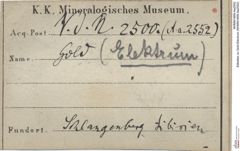 K. K. Mineralogisches Museum.
Acq. Post V. d. N. 2500. (Aa. 2552)
Name. Gold (Elektrum)
Fundort. Schlangenberg Sibirien